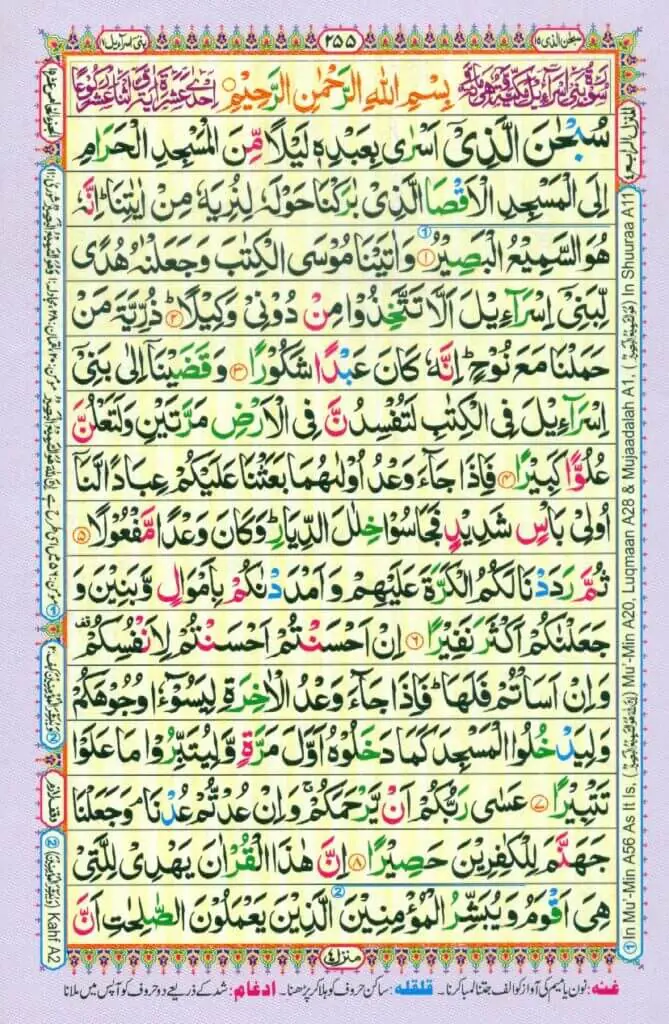 سبحٰن الذی ١٥
٢٥٥
بنی اسرآءیل ١٧
بِسْمِ اللهِ الرَّحْمٰنِ الرَّحِیْمِ
سُبْحٰنَ الَّذِیْۤ اَسْرٰی بِعَبْدِهٖ لَیْلًا مِّنَ الْمَسْجِدِ الْحَرَامِ
اِلَی الْمَسْجِدِ الْاَقْصَا الَّذِیْ بٰرَکْنَا حَوْلَهٗ لِنُرِیَهٗ مِنْ اٰیٰتِنَا ؕ اِنَّهٗ
هُوَ السَّمِیْعُ الْبَصِیْرُ ۝١ وَاٰتَیْنَا مُوْسَی الْکِتٰبَ وَجَعَلْنٰهُ هُدًی
لِّبَنِیْۤ اِسْرَآءِیْلَ اَلَّا تَتَّخِذُوْا مِنْ دُوْنِیْ وَکِیْلًا ۝٢ ذُرِّیَّةَ مَنْ
حَمَلْنَا مَعَ نُوْحٍ ؕ اِنَّهٗ کَانَ عَبْدًا شَکُوْرًا ۝٣ وَقَضَیْنَاۤ اِلٰی بَنِیْۤ
اِسْرَآءِیْلَ فِی الْکِتٰبِ لَتُفْسِدُنَّ فِی الْاَرْضِ مَرَّتَیْنِ وَلَتَعْلُنَّ
عُلُوًّا کَبِیْرًا ۝٤ فَاِذَا جَآءَ وَعْدُ اُوْلٰىهُمَا بَعَثْنَا عَلَیْکُمْ عِبَادًا لَّنَاۤ
اُولِیْ بَاْسٍ شَدِیْدٍ فَجَاسُوْا خِلٰلَ الدِّیَارِ ؕ وَکَانَ وَعْدًا مَّفْعُوْلًا ۝٥
ثُمَّ رَدَدْنَا لَکُمُ الْکَرَّةَ عَلَیْهِمْ وَاَمْدَدْنٰکُمْ بِاَمْوَالٍ وَّبَنِیْنَ وَ
جَعَلْنٰکُمْ اَکْثَرَ نَفِیْرًا ۝٦ اِنْ اَحْسَنْتُمْ اَحْسَنْتُمْ لِاَنْفُسِکُمْ
وَاِنْ اَسَاْتُمْ فَلَهَا ؕ فَاِذَا جَآءَ وَعْدُ الْاٰخِرَةِ لِیَسُوْٓءٗا وُجُوْهَکُمْ
وَلِیَدْخُلُوا الْمَسْجِدَ کَمَا دَخَلُوْهُ اَوَّلَ مَرَّةٍ وَّلِیُتَبِّرُوْا مَا عَلَوْا
تَتْبِیْرًا ۝٧ عَسٰی رَبُّکُمْ اَنْ یَّرْحَمَکُمْ ۚ وَاِنْ عُدْتُّمْ عُدْنَا ۘ وَجَعَلْنَا
جَهَنَّمَ لِلْکٰفِرِیْنَ حَصِیْرًا ۝٨ اِنَّ هٰذَا الْقُرْاٰنَ یَهْدِیْ لِلَّتِیْ
هِیَ اَقْوَمُ وَیُبَشِّرُ الْمُؤْمِنِیْنَ الَّذِیْنَ یَعْمَلُوْنَ الصّٰلِحٰتِ اَنَّ
منزل ٤
غنه: نون یا میم کی آواز کو الف جتنا لمبا کرنا۔ قلقله: ساکن حروف کو ہلا کر پڑھنا۔ ادغام: شد کے ذریعے دو حروف کو آپس میں ملانا
① In Mu'-Min A56 As It Is, (انه هو السمیع البصیر) Mu'-Min A20, Luqmaan A28 & Mujaadalah A1, (هو السمیع البصیر) In Shuuraa A11
② (ویبشر المؤمنین) Kahf A2